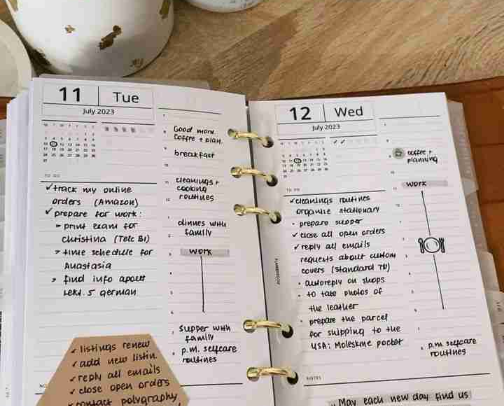 11 Tue
July 2023
Good morn.
coffee + plan.
breakfast
cleanings +
cooking
routines
dinner with
family
WORK
supper with
family
p.m. selfcare
routines
TO DO
✓ track my online
orders (Amazon)
✓ prepare for work:
print exam for
Christina (Telc B1)
time schedule for
Anastasia
find info about
German
listings renew
add new listin.
reply all emails
close open orders
contact polygraphy
12 Wed
July 2023
coffee +
planning
WORK
p.m. selfcare
routines
TO DO
✓ cleanings routines
organize stationary
prepare supper
✓ close all open orders
✓ reply all emails
requests about custom
covers (standard TN)
autoreply on shops
to take photos of
the leather
prepare the parcel
for shipping to the
USA: Moleskine pocket
NOTES
May each new day find us